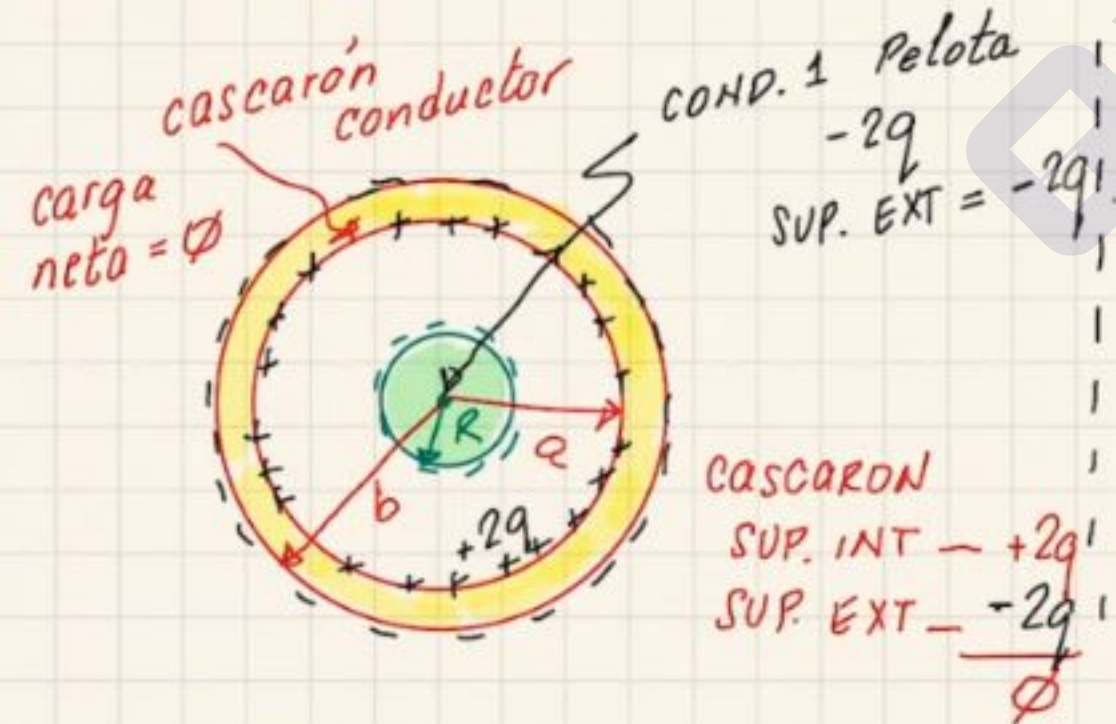 cascarón
conductor
carga
neta = Ø
COND. 1 Pelota
-2q
SUP. EXT = -2q
R
a
b
+2q
CASCARON
SUP. INT — +2q
SUP. EXT — -2q
Ø